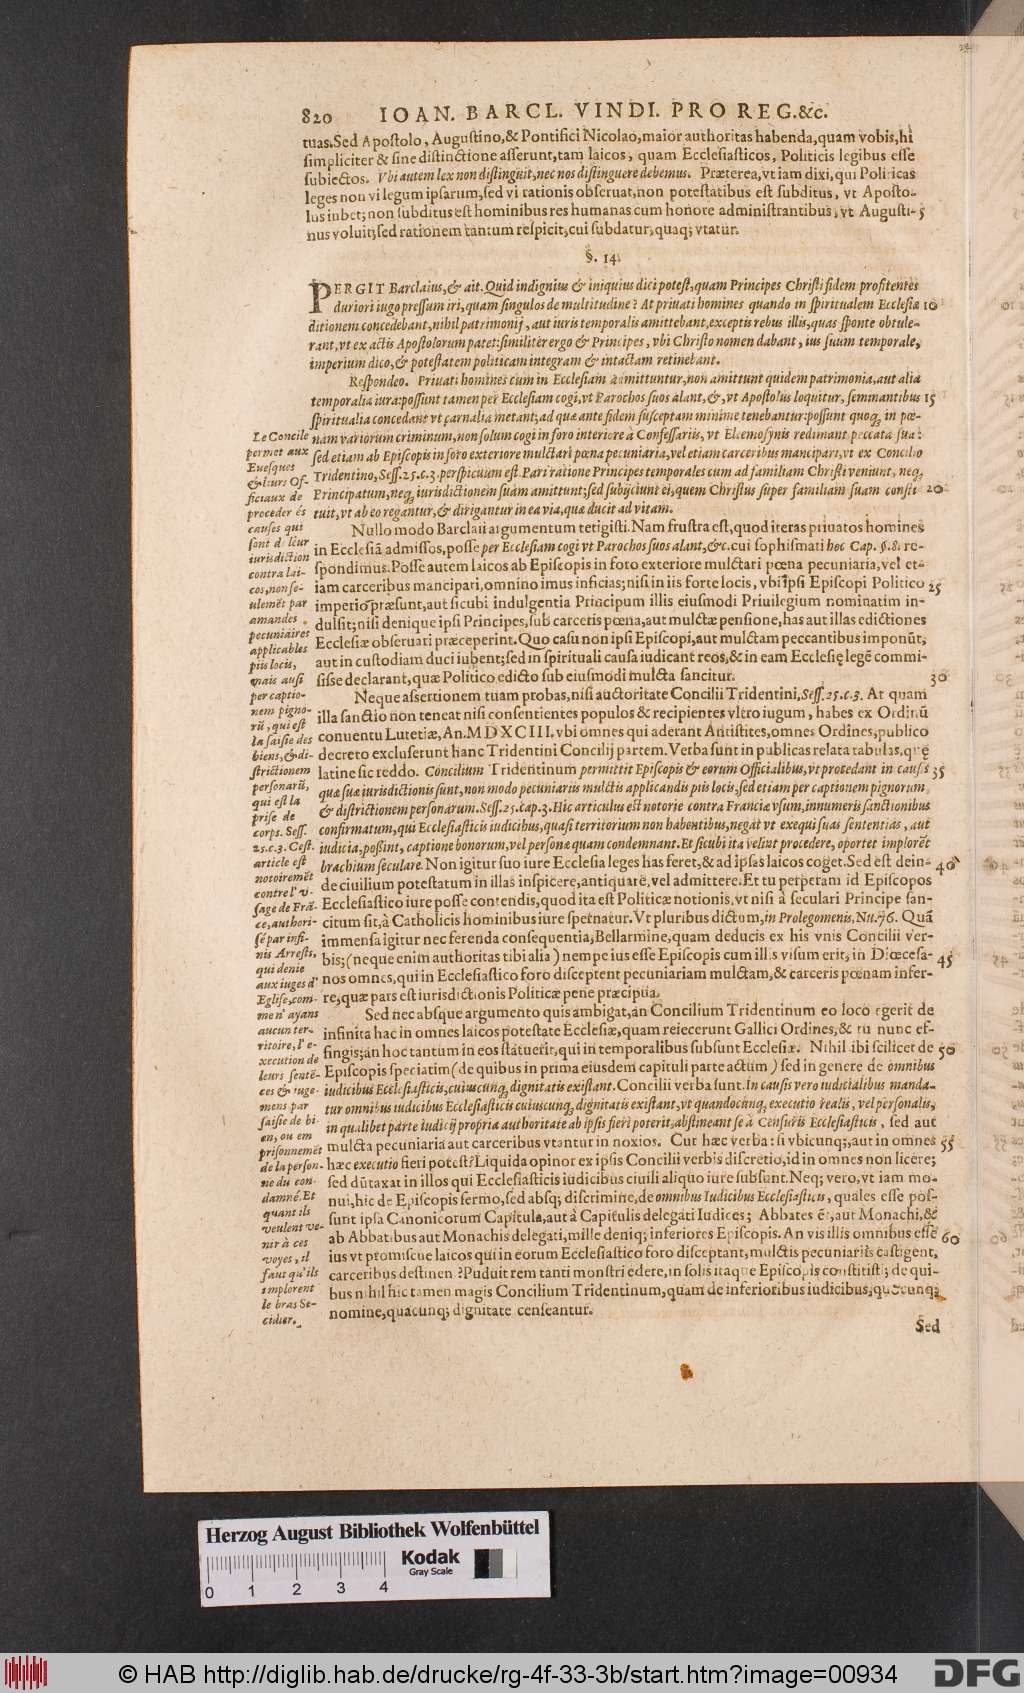 820 IOAN. BARCL. VINDI. PRO REG. &c.
tuas. Sed Apostolo, Augustino, & Pontifici Nicolao, maior authoritas habenda, quam vobis, hi
simpliciter & sine distinctione asserunt, tam laicos, quam Ecclesiasticos, Politicis legibus esse
subiectos. Vbi autem lex non distinguit, nec nos distinguere debemus. Præterea, vt iam dixi, qui Politicas
leges non vi legum ipsarum, sed vi rationis obseruat, non potestatibus est subditus, vt Aposto-
lus iubet; non subditus est hominibus res humanas cum honore administrantibus, vt Augusti- 5
nus voluit; sed rationem tantum respicit, cui subdatur, quaq; vtatur.
§. 14.
PERGIT Barclaius, & ait. Quid indignius & iniquius dici potest, quam Principes Christi fidem profitentes
duriori iugo pressum iri, quam singulos de multitudine? At priuati homines quando in spiritualem Ecclesiæ 10
ditionem concedebant, nihil patrimonij, aut iuris temporalis amittebant, exceptis rebus illis, quas sponte obtule-
rant, vt ex actis Apostolorum patet: similiter ergo & Principes, vbi Christo nomen dabant, ius suum temporale,
imperium dico, & potestatem politicam integram & intactam retinebant.
Respondeo. Priuati homines cum in Ecclesiam admittuntur, non amittunt quidem patrimonia, aut alia
temporalia iura: possunt tamen per Ecclesiam cogi, vt Parochos suos alant, &, vt Apostolus loquitur, semmantibus 15
spiritualia concedant vt carnalia metant; ad quæ ante fidem susceptam minime tenebantur: possunt quoq; in pœ-
nam variorum criminum, non solum cogi in foro interiore à Confessariis, vt Eleemosynis redimant peccata sua:
sed etiam ab Episcopis in foro exteriore mulctari pœna pecuniaria, vel etiam carceribus mancipari, vt ex Concilio
Tridentino, Sess. 25. c. 3. perspicuum est. Pari ratione Principes temporales cum ad familiam Christi veniunt, neq;
Principatum, neq; iurisdictionem suam amittunt; sed subijciunt ei, quem Christus super familiam suam consti 20
tuit, vt ab eo regantur, & dirigantur in ea via, quæ ducit ad vitam.
Nullo modo Barclaii argumentum tetigisti. Nam frustra est, quod iteras priuatos homines
in Ecclesiā admissos, posse per Ecclesiam cogi vt Parochos suos alant, &c. cui sophismati hoc Cap. §. 8. re-
spondimus. Posse autem laicos ab Episcopis in foro exteriore mulctari pœna pecuniaria, vel et-
iam carceribus mancipari, omnino imus inficias; nisi in iis forte locis, vbi ipsi Episcopi Politico 25
imperio præsunt, aut sicubi indulgentia Principum illis eiusmodi Priuilegium nominatim in-
dulsit; nisi denique ipsi Principes, sub carceris pœna, aut mulctæ pensione, has aut illas edictiones
Ecclesiæ obseruari præceperint. Quo casu non ipsi Episcopi, aut mulctam peccantibus imponūt,
aut in custodiam duci iubent; sed in spirituali causa iudicant reos, & in eam Ecclesię legē commi-
sisse declarant, quæ Politico edicto sub eiusmodi mulcta sancitur. 30
Neque assertionem tuam probas, nisi auctoritate Concilii Tridentini, Sess. 25. c. 3. At quam
illa sanctio non teneat nisi consentientes populos & recipientes vltro iugum, habes ex Ordinū
conuentu Lutetiæ, An. MDXCIII. vbi omnes qui aderant Antistites, omnes Ordines, publico
decreto excluserunt hanc Tridentini Concilij partem. Verba sunt in publicas relata tabulas, quę
latine sic reddo. Concilium Tridentinum permittit Episcopis & eorum Officialibus, vt procedant in causis 35
quæ suæ iurisdictionis sunt, non modo pecuniariis mulctis applicandis piis locis, sed etiam per captionem pignorum,
& districtionem personarum. Sess. 25. cap. 3. Hic articulus est notorie contra Franciæ vsum, innumeris sanctionibus
confirmatum, qui Ecclesiasticis iudicibus, quasi territorium non habentibus, negat vt exequi suas sententias, aut
iudicia, possint, captione bonorum, vel personæ quam condemnant. Et sicubi ita velint procedere, oportet implorēt
brachium seculare. Non igitur suo iure Ecclesia leges has feret, & ad ipsas laicos coget. Sed est dein- 40
de ciuilium potestatum in illas inspicere, antiquare, vel admittere. Et tu perperam id Episcopos
Ecclesiastico iure posse contendis, quod ita est Politicæ notionis, vt nisi à seculari Principe san-
citum sit, à Catholicis hominibus iure spernatur. Vt pluribus dictum, in Prolegomenis, Nu. 76. Quā
immensa igitur nec ferenda consequentia, Bellarmine, quam deducis ex his vnis Concilii ver-
bis; (neque enim authoritas tibi alia) nempe ius esse Episcopis cum illis visum erit, in Diœcesa- 45
nos omnes, qui in Ecclesiastico foro disceptent pecuniariam mulctam, & carceris pœnam infer-
re, quæ pars est iurisdictionis Politicæ pene præcipua.
Sed nec absque argumento quis ambigat, an Concilium Tridentinum eo loco egerit de
infinita hac in omnes laicos potestate Ecclesiæ, quam reiecerunt Gallici Ordines, & tu nunc ef-
fingis; an hoc tantum in eos statuerit, qui in temporalibus subsunt Ecclesiæ. Nihil ibi scilicet de 50
Episcopis speciatim (de quibus in prima eiusdem capituli parte actum) sed in genere de omnibus
iudicibus Ecclesiasticis, cuiuscunq; dignitatis existant. Concilii verba sunt. In causis vero iudicialibus manda-
tur omnibus iudicibus Ecclesiasticis cuiuscunq; dignitatis existant, vt quandocunq; executio realis, vel personalis,
in qualibet parte iudicij propria authoritate ab ipsis fieri poterit, abstineant se à Censuris Ecclesiasticis, sed aut
mulcta pecuniaria aut carceribus vtantur in noxios. Cur hæc verba: si vbicunq;, aut in omnes 55
hæc executio fieri potest? Liquida opinor ex ipsis Concilii verbis discretio, id in omnes non licere;
sed dūtaxat in illos qui Ecclesiasticis iudicibus ciuili aliquo iure subsunt. Neq; vero, vt iam mo-
nui, hic de Episcopis sermo, sed absq; discrimine, de omnibus Iudicibus Ecclesiasticis, quales esse pos-
sunt ipsa Canonicorum Capitula, aut à Capitulis delegati Iudices; Abbates ē, aut Monachi, &
ab Abbatibus aut Monachis delegati, mille deniq; inferiores Episcopis. An vis illis omnibus esse 60
ius vt promiscue laicos qui in eorum Ecclesiastico foro disceptant, mulctis pecuniariis castigent,
carceribus destinen? Puduit rem tanti monstri edere, in solis itaque Episcopis constitisti; de qui-
bus nihil hic tamen magis Concilium Tridentinum, quam de inferioribus iudicibus, quocunq;
nomine, quacunq; dignitate censeantur.
Sed
Le Concile
permet aux
Euesques
& leurs Of-
ficiaux de
proceder és
causes qui
sont de leur
iurisdiction
contra lai-
cos, non so-
ulemēt par
amandes
pecuniaires
applicables
piis locis,
mais aussi
per captio-
nem pigno-
rū, qui est
la saisie des
biens, & di-
strictionem
personarū,
qui est la
prise de
corps. Sess.
25. c. 3. Cest
article est
notoiremēt
contre l'v-
sage de Frā-
ce, authori-
sé par infi-
nis Arrests,
qui denie
aux iuges d'
Eglise, com-
me n'ayans
aucun ter-
ritoire, l'e-
xecution de
leurs sentē-
ces & iuge-
mens par
saisie de bi
en, ou em
prisonnemēt
de la person-
ne du con-
damné. Et
quant ils
veulent ve-
nir à ces
voyes, il
faut qu'ils
implorent
le bras Se-
culier.
Herzog August Bibliothek Wolfenbüttel
Kodak
Gray Scale
0 1 2 3 4
© HAB http://diglib.hab.de/drucke/rg-4f-33-3b/start.htm?image=00934
DFG